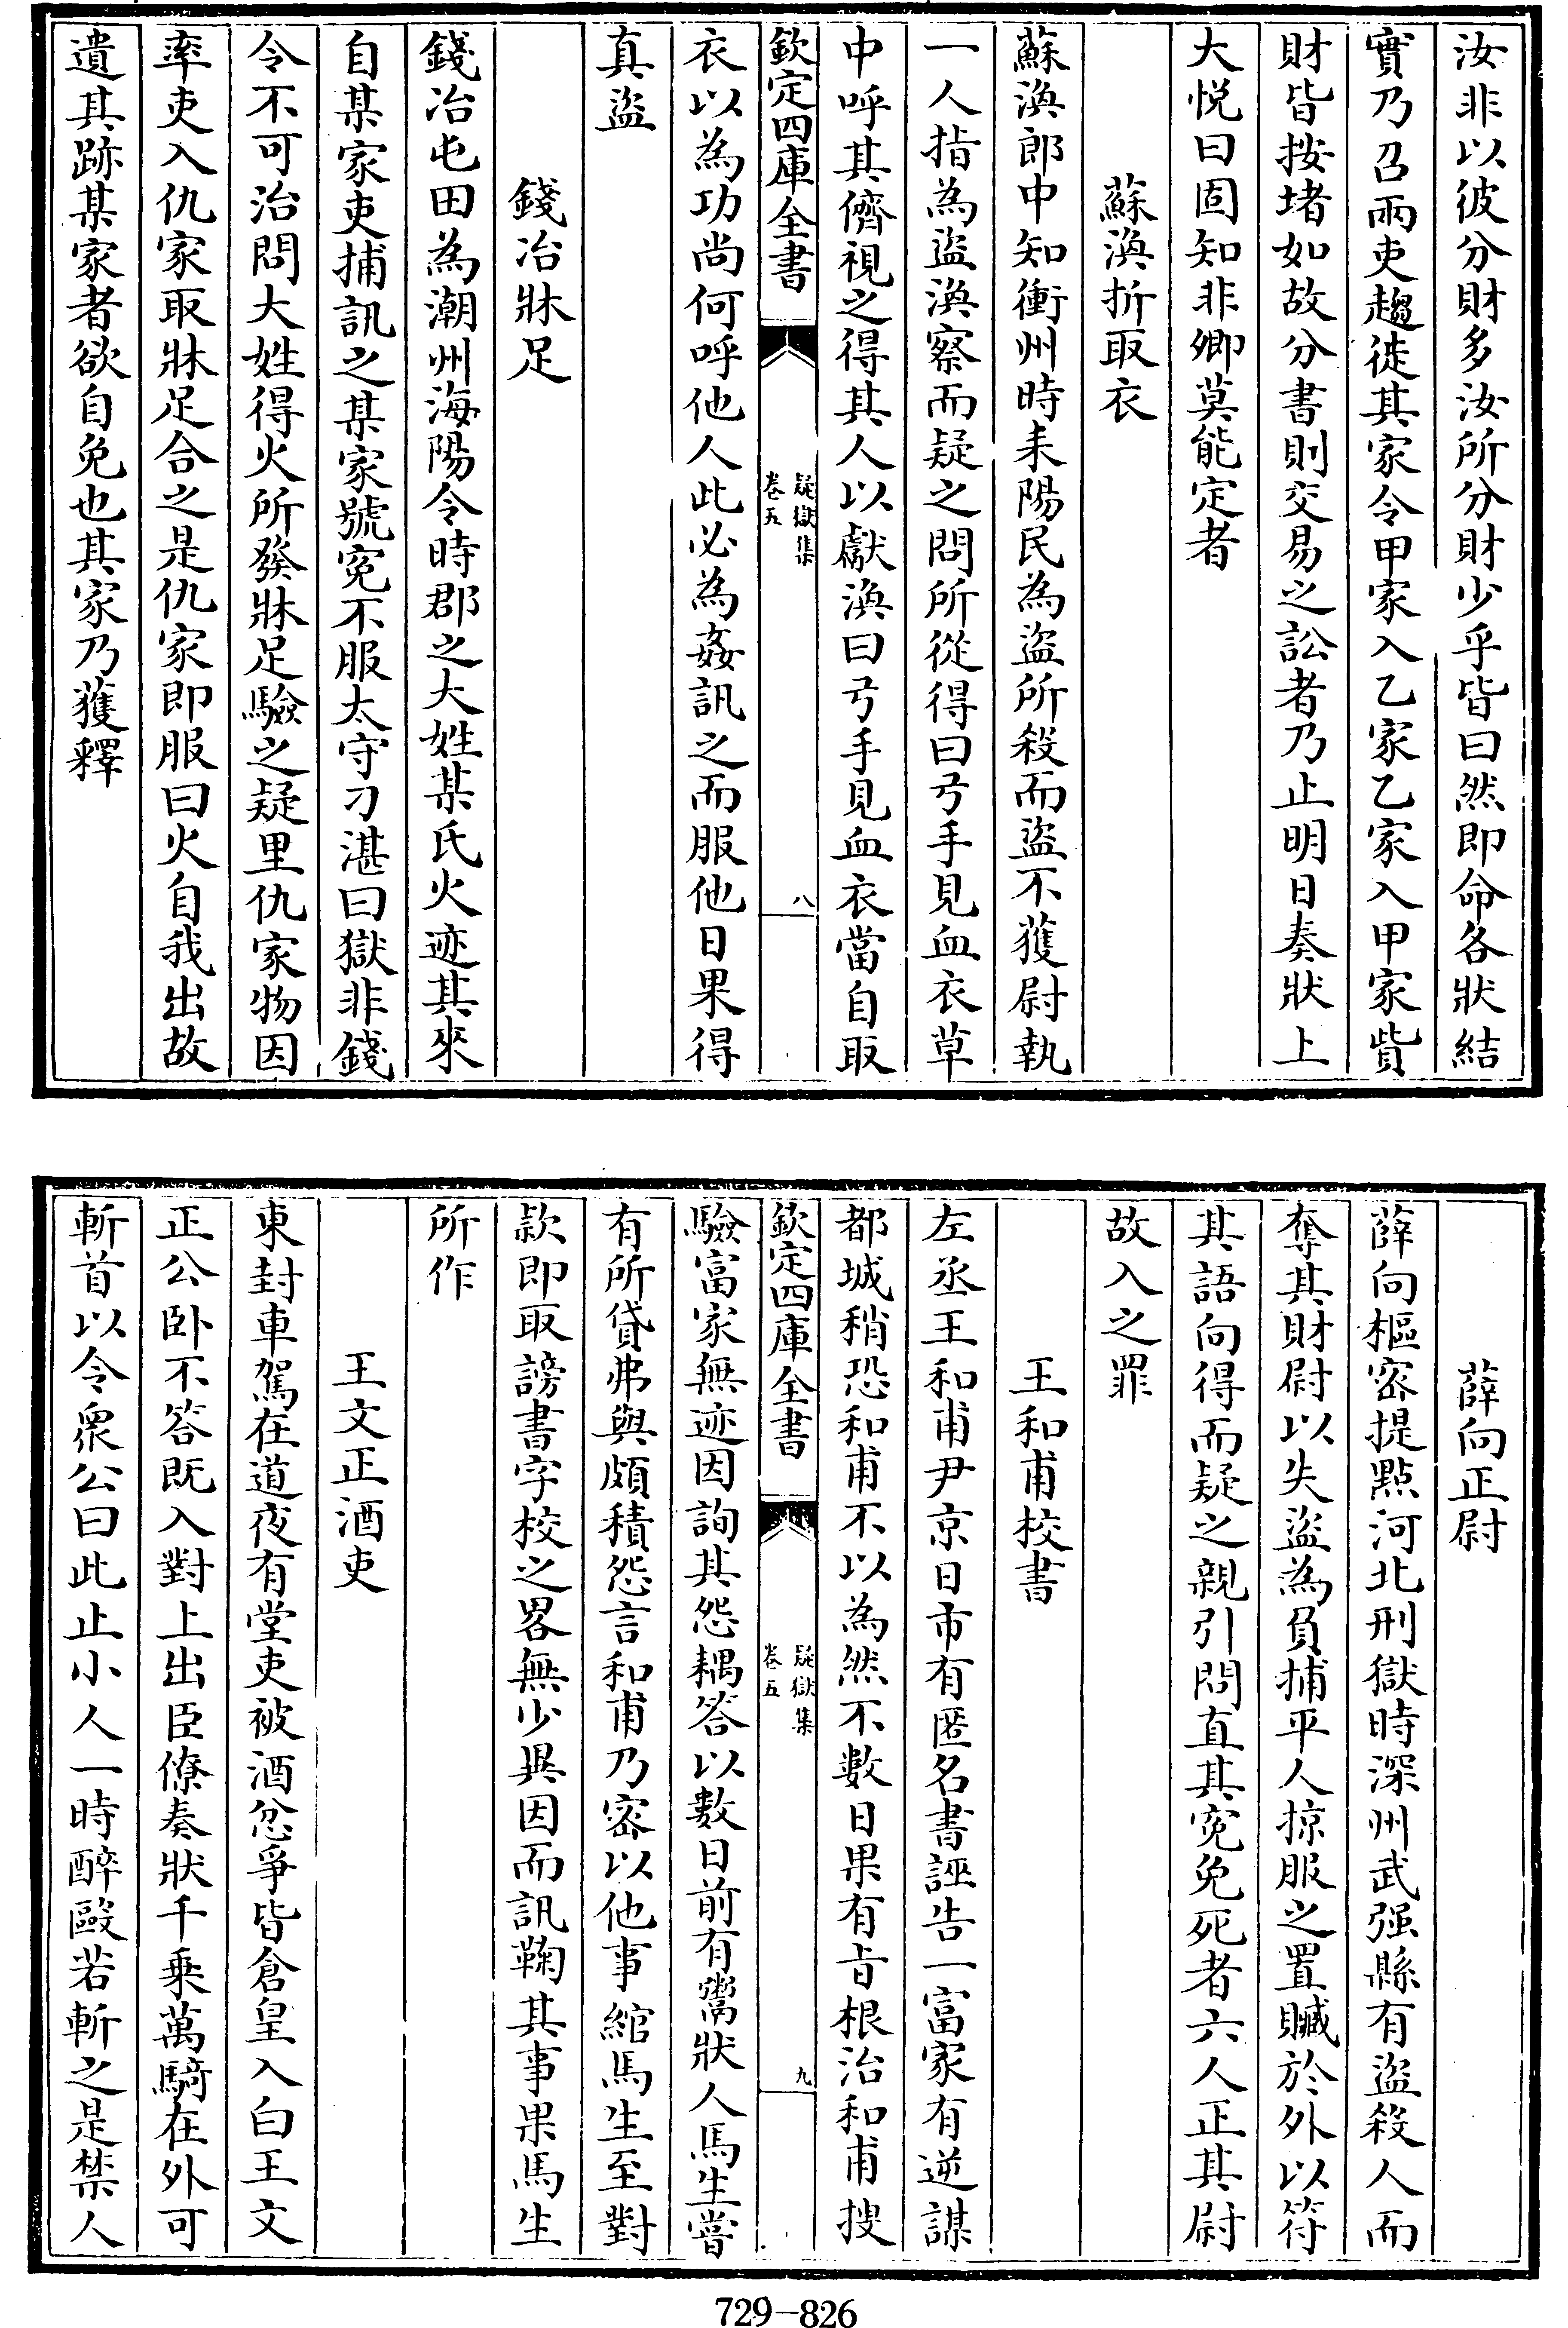 汝非以彼分財多汝所分財少乎皆曰然即命各狀結
實乃召兩吏趨徙其家令甲家入乙家乙家入甲家貲
財皆按堵如故分書則交易之訟者乃止明日奏狀上
大悦曰固知非卿莫能定者
蘇渙折取衣
蘇渙郎中知衝州時耒陽民為盜所殺而盜不獲尉執
一人指為盜渙察而疑之問所從得曰弓手見血衣草
中呼其儕視之得其人以獻渙曰弓手見血衣當自取
欽定四庫全書
疑獄集
卷五
八
衣以為功尚何呼他人此必為姦訊之而服他日果得
真盜
錢冶牀足
錢冶屯田為潮州海陽令時郡之大姓某氏火迹其來
自某家吏捕訊之某家號寃不服太守刁湛曰獄非錢
令不可治問大姓得火所發牀足驗之疑里仇家物因
率吏入仇家取牀足合之是仇家即服曰火自我出故
遺其跡某家者欲自免也其家乃獲釋
薛向正尉
薛向樞密提點河北刑獄時深州武强縣有盜殺人而
奪其財尉以失盜為負捕平人掠服之置贓於外以符
其語向得而疑之親引問直其寃免死者六人正其尉
故入之罪
王和甫校書
左丞王和甫尹京日市有匿名書誣告一富家有逆謀
都城稍恐和甫不以為然不數日果有㫖根治和甫搜
欽定四庫全書
疑獄集
卷五
九
驗富家無迹因詢其怨耦答以數日前有鬻狀人馬生嘗
有所貸弗與頗積怨言和甫乃密以他事綰馬生至對
款即取謗書字校之畧無少異因而訊鞠其事果馬生
所作
王文正酒吏
東封車駕在道夜有堂吏被酒忿爭皆倉皇入白王文
正公卧不答既入對上出臣僚奏狀千乗萬騎在外可
斬首以令衆公曰此止小人一時醉毆若斬之是禁人
729-826